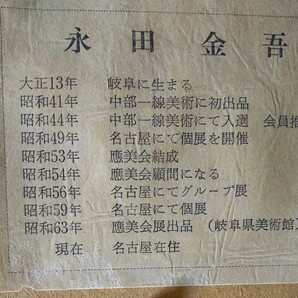 永田金吾
大正13年 岐阜に生まる
昭和41年 中部一線美術に初出品
昭和44年 中部一線美術にて入選 会員推
昭和49年 名古屋にて個展を開催
昭和53年 應美会結成
昭和54年 應美会顧問になる
昭和56年 名古屋にてグループ展
昭和59年 名古屋にて個展
昭和63年 應美会展出品 (岐阜県美術館)
現在 名古屋在住